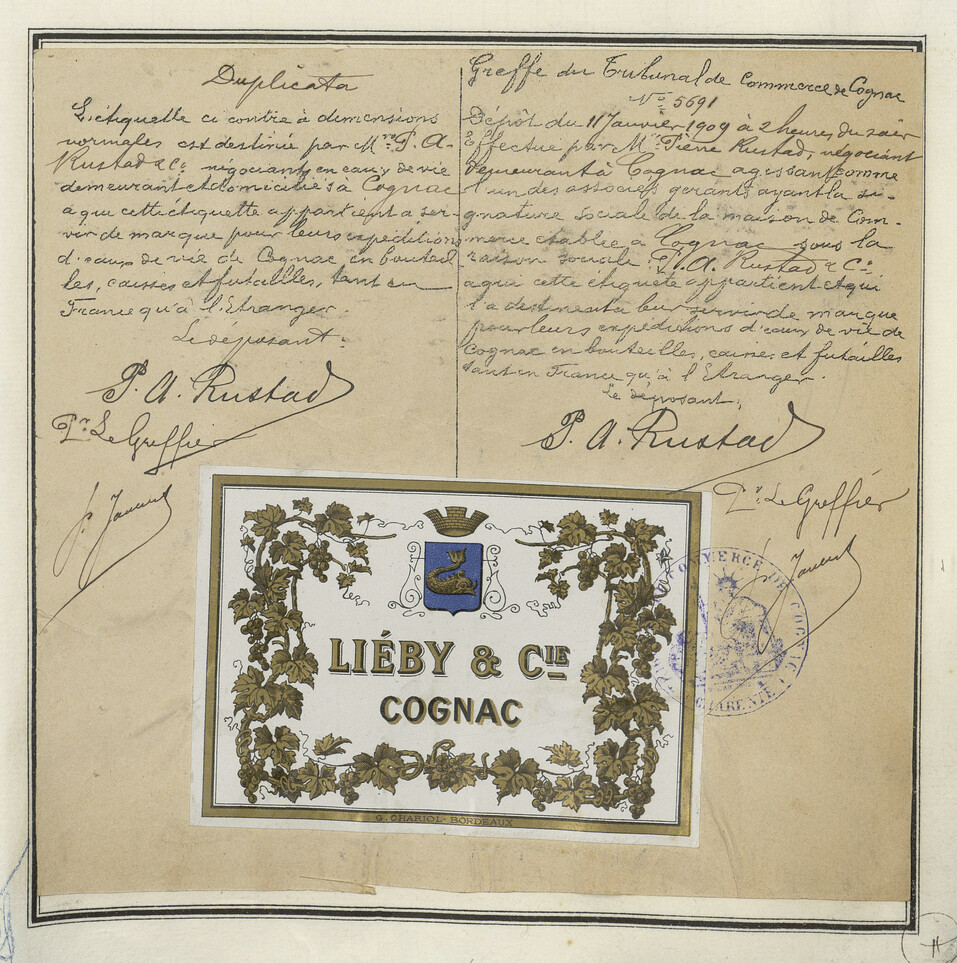 Duplicata
L'étiquette ci contre à dimensions
normales est destinée par Mrs P. A.
Rustad & Co. négociants en eaux de vie
demeurant et domiciliés à Cognac
a qui cette étiquette appartient a ser-
vir de marque pour leurs expéditions
d'eaux de vie de Cognac en bouteil
les, caisses et futailles, tant en
France qu'à l'Etranger.
Le déposant.
P. A. Rustad
Pr. Le Greffier
Greffe du Tribunal de Commerce de Cognac
No 5691
Dépôt du 11 Janvier 1909 à 2 heures du soir
Effectué par Mr Pierre Rustad, négociant
demeurant à Cognac agissant comme
l'un des associés gérants ayant la si-
gnature sociale de la maison de Com-
merce établie à Cognac sous la
raison sociale P. A. Rustad & Co.
a qui cette étiquette appartient et qui
l'a destine a leur servir de marque
pour leurs expéditions d'eaux de vie de
Cognac en bouteilles, caisses et futailles
tant en France qu'à l'Etranger.
Le déposant,
P. A. Rustad
Pr. Le Greffier
LIÉBY & CIE
COGNAC
G. CHARIOL - BORDEAUX
COMMERCE DE COGNAC
CHARENTE